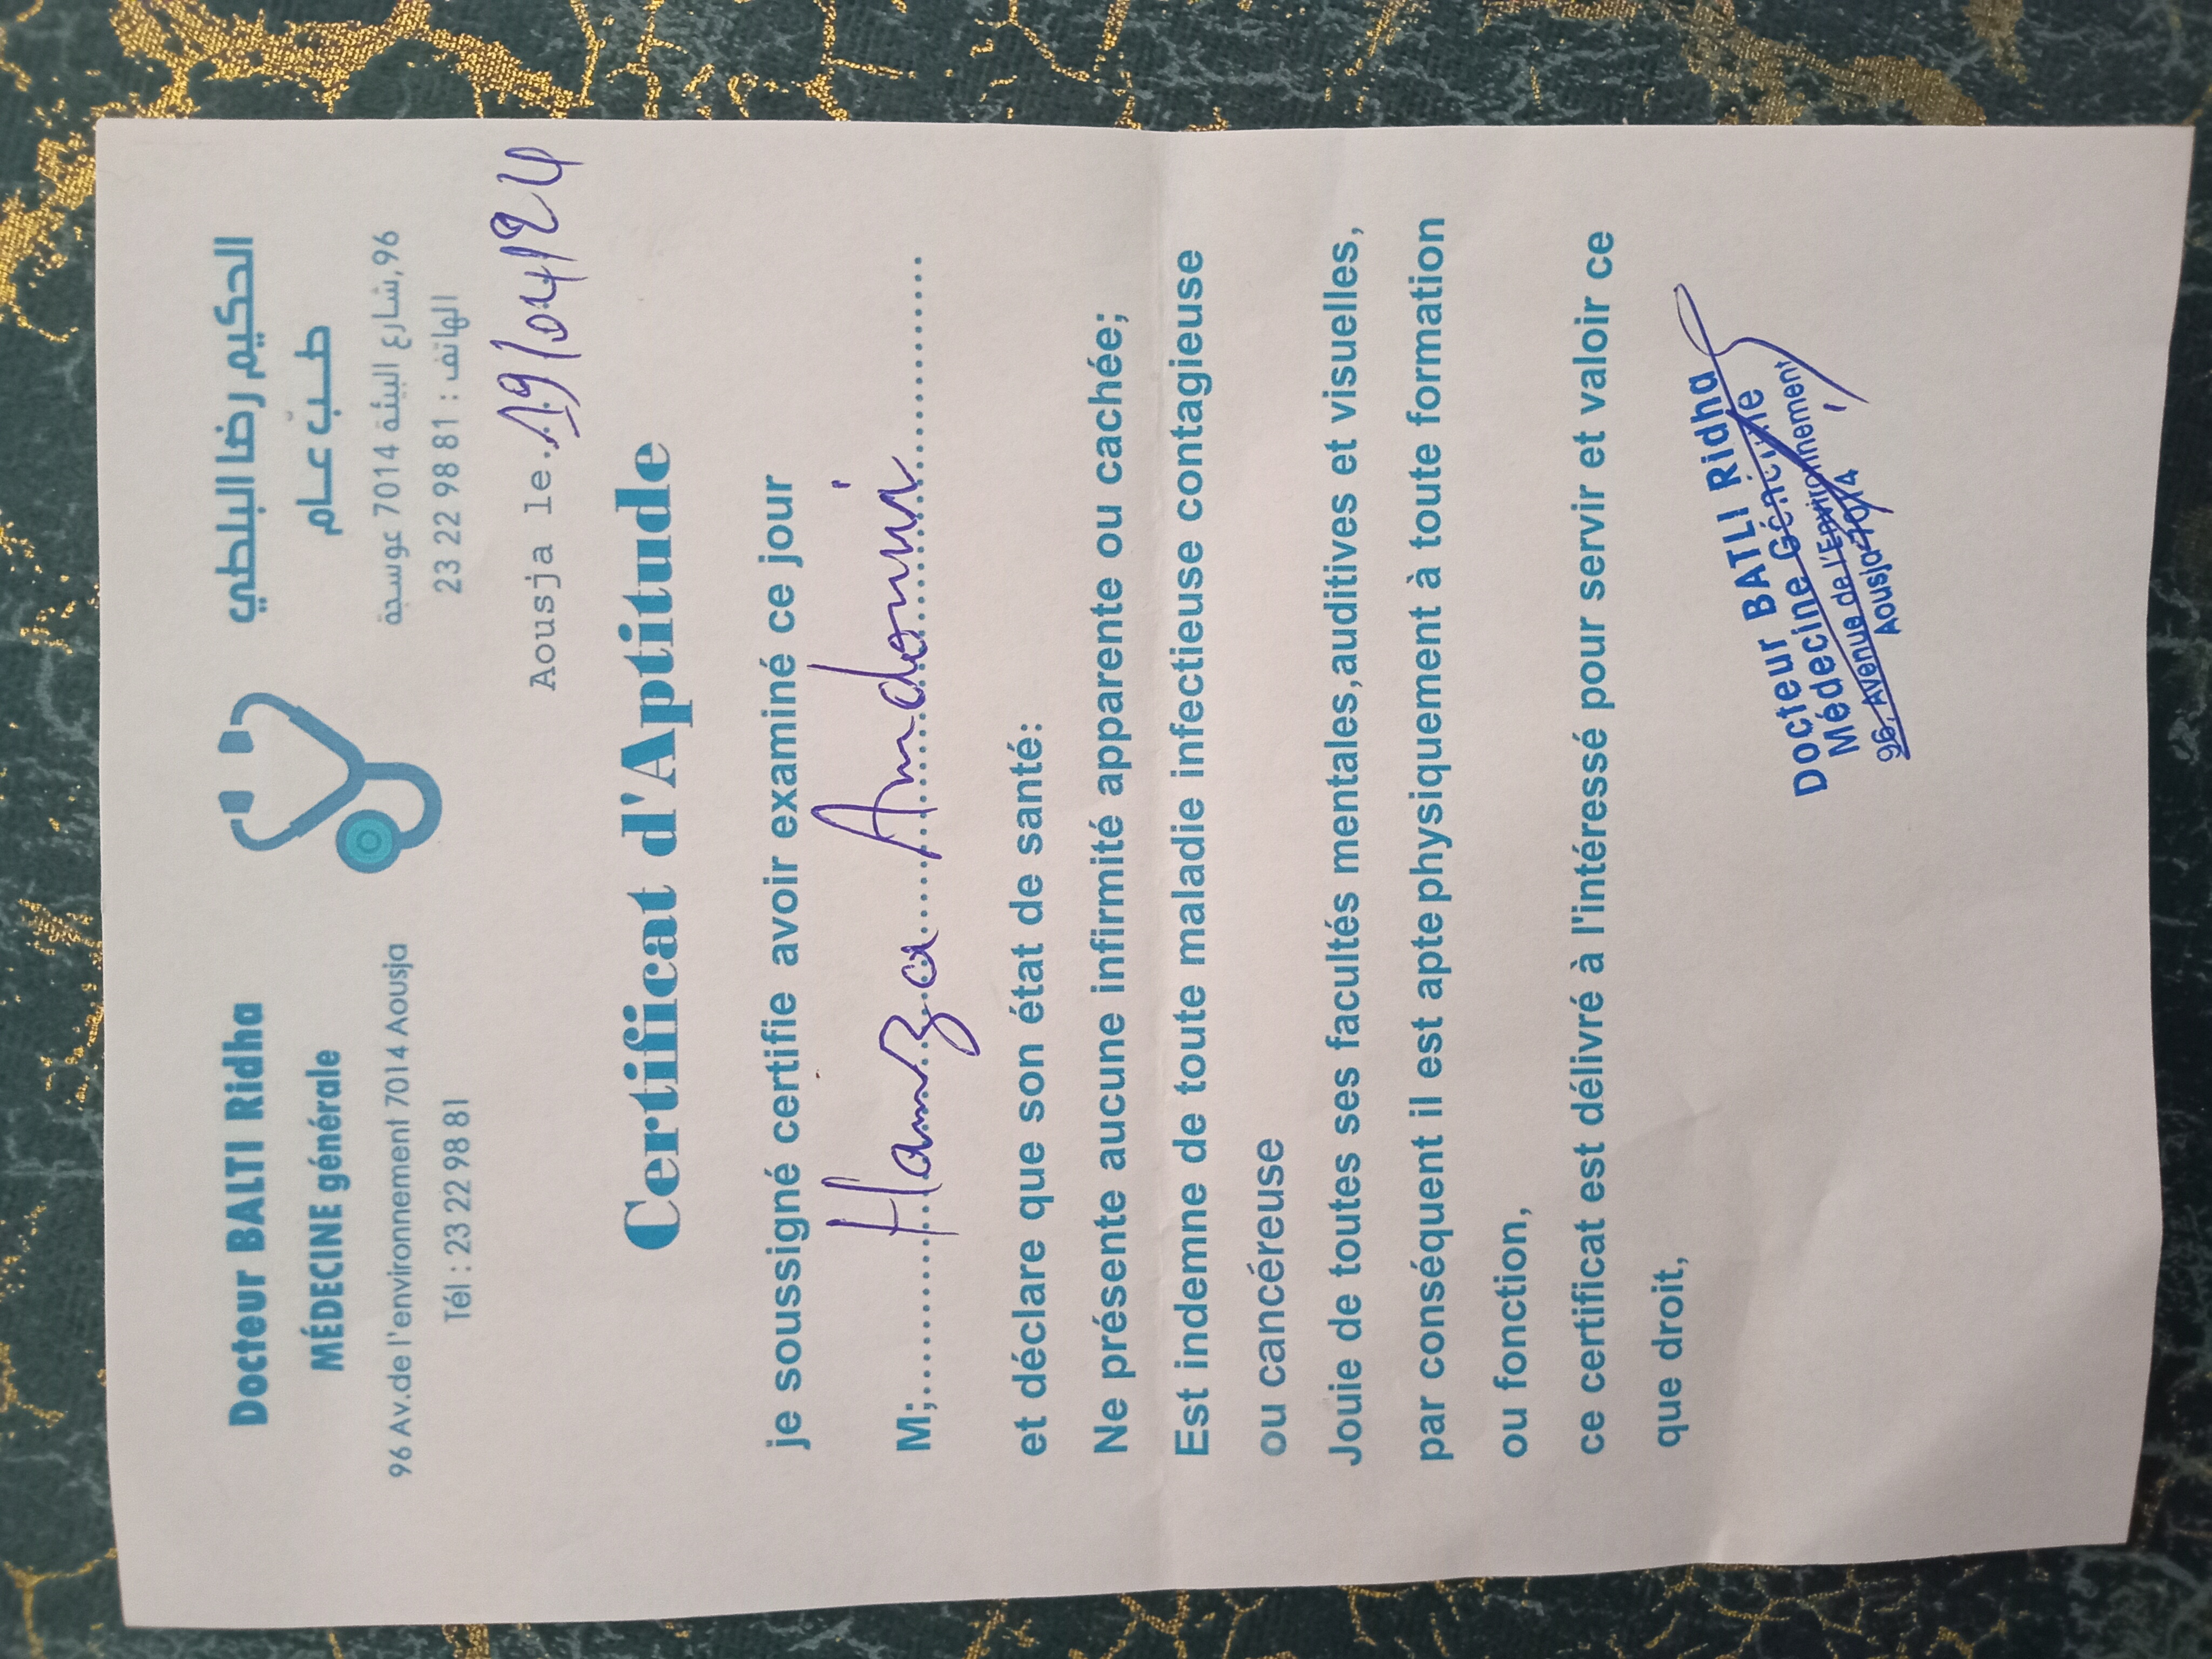 Docteur BALTI Ridha
MÉDECINE générale
96 Av.de l'environnement 7014 Aousja
Tél : 23 22 98 81
الحكيم رضا البلطي
طبّ عام
96, شارع البيئة 7014 عوسجة
الهاتف : 81 98 22 23
Aousja le 19/04/24
Certificat d'Aptitude
je soussigné certifie avoir examiné ce jour
M;........Hamza Amdouni........
et déclare que son état de santé:
Ne présente aucune infirmité apparente ou cachée;
Est indemne de toute maladie infectieuse contagieuse
ou cancéreuse
Jouie de toutes ses facultés mentales,auditives et visuelles,
par conséquent il est apte physiquement à toute formation
ou fonction,
ce certificat est délivré à l'intéressé pour servir et valoir ce
que droit,
Docteur BATLI Ridha
Médecine Générale
96, Avenue de l'Environnement
Aousja 7014